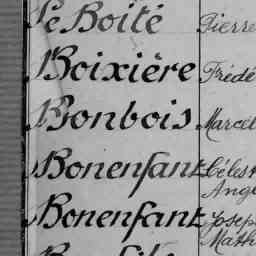 Le Boité Pierre
Boixière Frédé
Bonbois Marcel
Bonenfant Célest
Ange
Bonenfant Joseph
Math